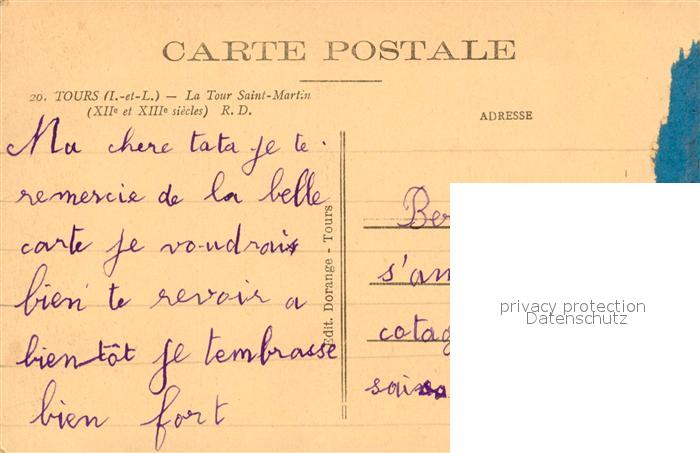 CARTE POSTALE
20. TOURS (I.-et-L.) — La Tour Saint-Martin
(XIIe et XIIIe siècles) R. D.
ADRESSE
Ma chere tata je te
remercie de la belle
carte je voudrais
bien te revoir a
bientôt je tembrasse
bien fort
Edit. Dorange - Tours
Ber
s'am
cotag
privacy protection
Datenschutz